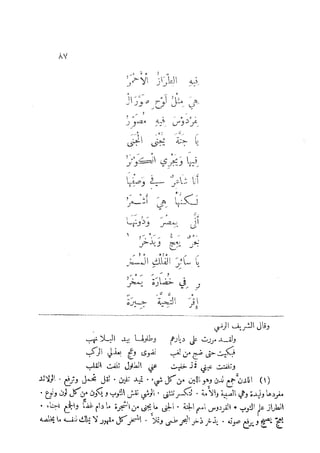 ٨٧
فيهِ الطِّرَازُ الأَحْمَرُ
هِيَ مِثْلُ لَوْحِ صُوِّرَ الْ
فِرْدَوْسُ فِيهِ مُصَوِّرُ
يَا جَنَّةً يُجْنَى الْجَنَى
فِيهَا وَيَجْرِي الْكَوْثَرُ
أَنَا شَاعِرٌ فِي وَصْفِهَا
لَكِنَّهَا هِيَ أَشْعَرُ
أَنَّى بِمِصْرَ وَدُونَهَا
بَحْرٌ يَعِجُّ وَيَذْخَرُ
يَا سَائِرَ الْفُلْكِ
رِ فِي خُضَارَةَ يَمْخَرُ
إِقْرَ التَّحِيَّةَ جِيرَةً
وقال الشريف الرضي
ولقد مررت على ديارهم وطلولها بيد البلا نهب
فبكيت حتى ضج من لغب نضوى ولج بعذلي الركب
وتلفتت عيني فمذ خفيت عني الطلول تلفت القلب
(١) اللدن جمع لدن وهو اللين من كل شيء ٠ تميد تلين ٠ تقل تحمل وترفع ٠ الولائد
مفردها وليدة وهي الصبية والأمة ٠ تتكسر تتثنى ٠ الوشي نقش الثوب ويكون من كل لون ونوع ٠
الطراز علم الثوب * الفردوس اسم الجنة ٠ الجنى ما يجنى من الشجرة ما دام غضاً والجمع اجناء ٠
يعج يصيح ويرفع صوته ٠ يذخر ذخر البحر طمى وتملأ ٠ كل مقهور لا يملك لنفسه ما يخلصه